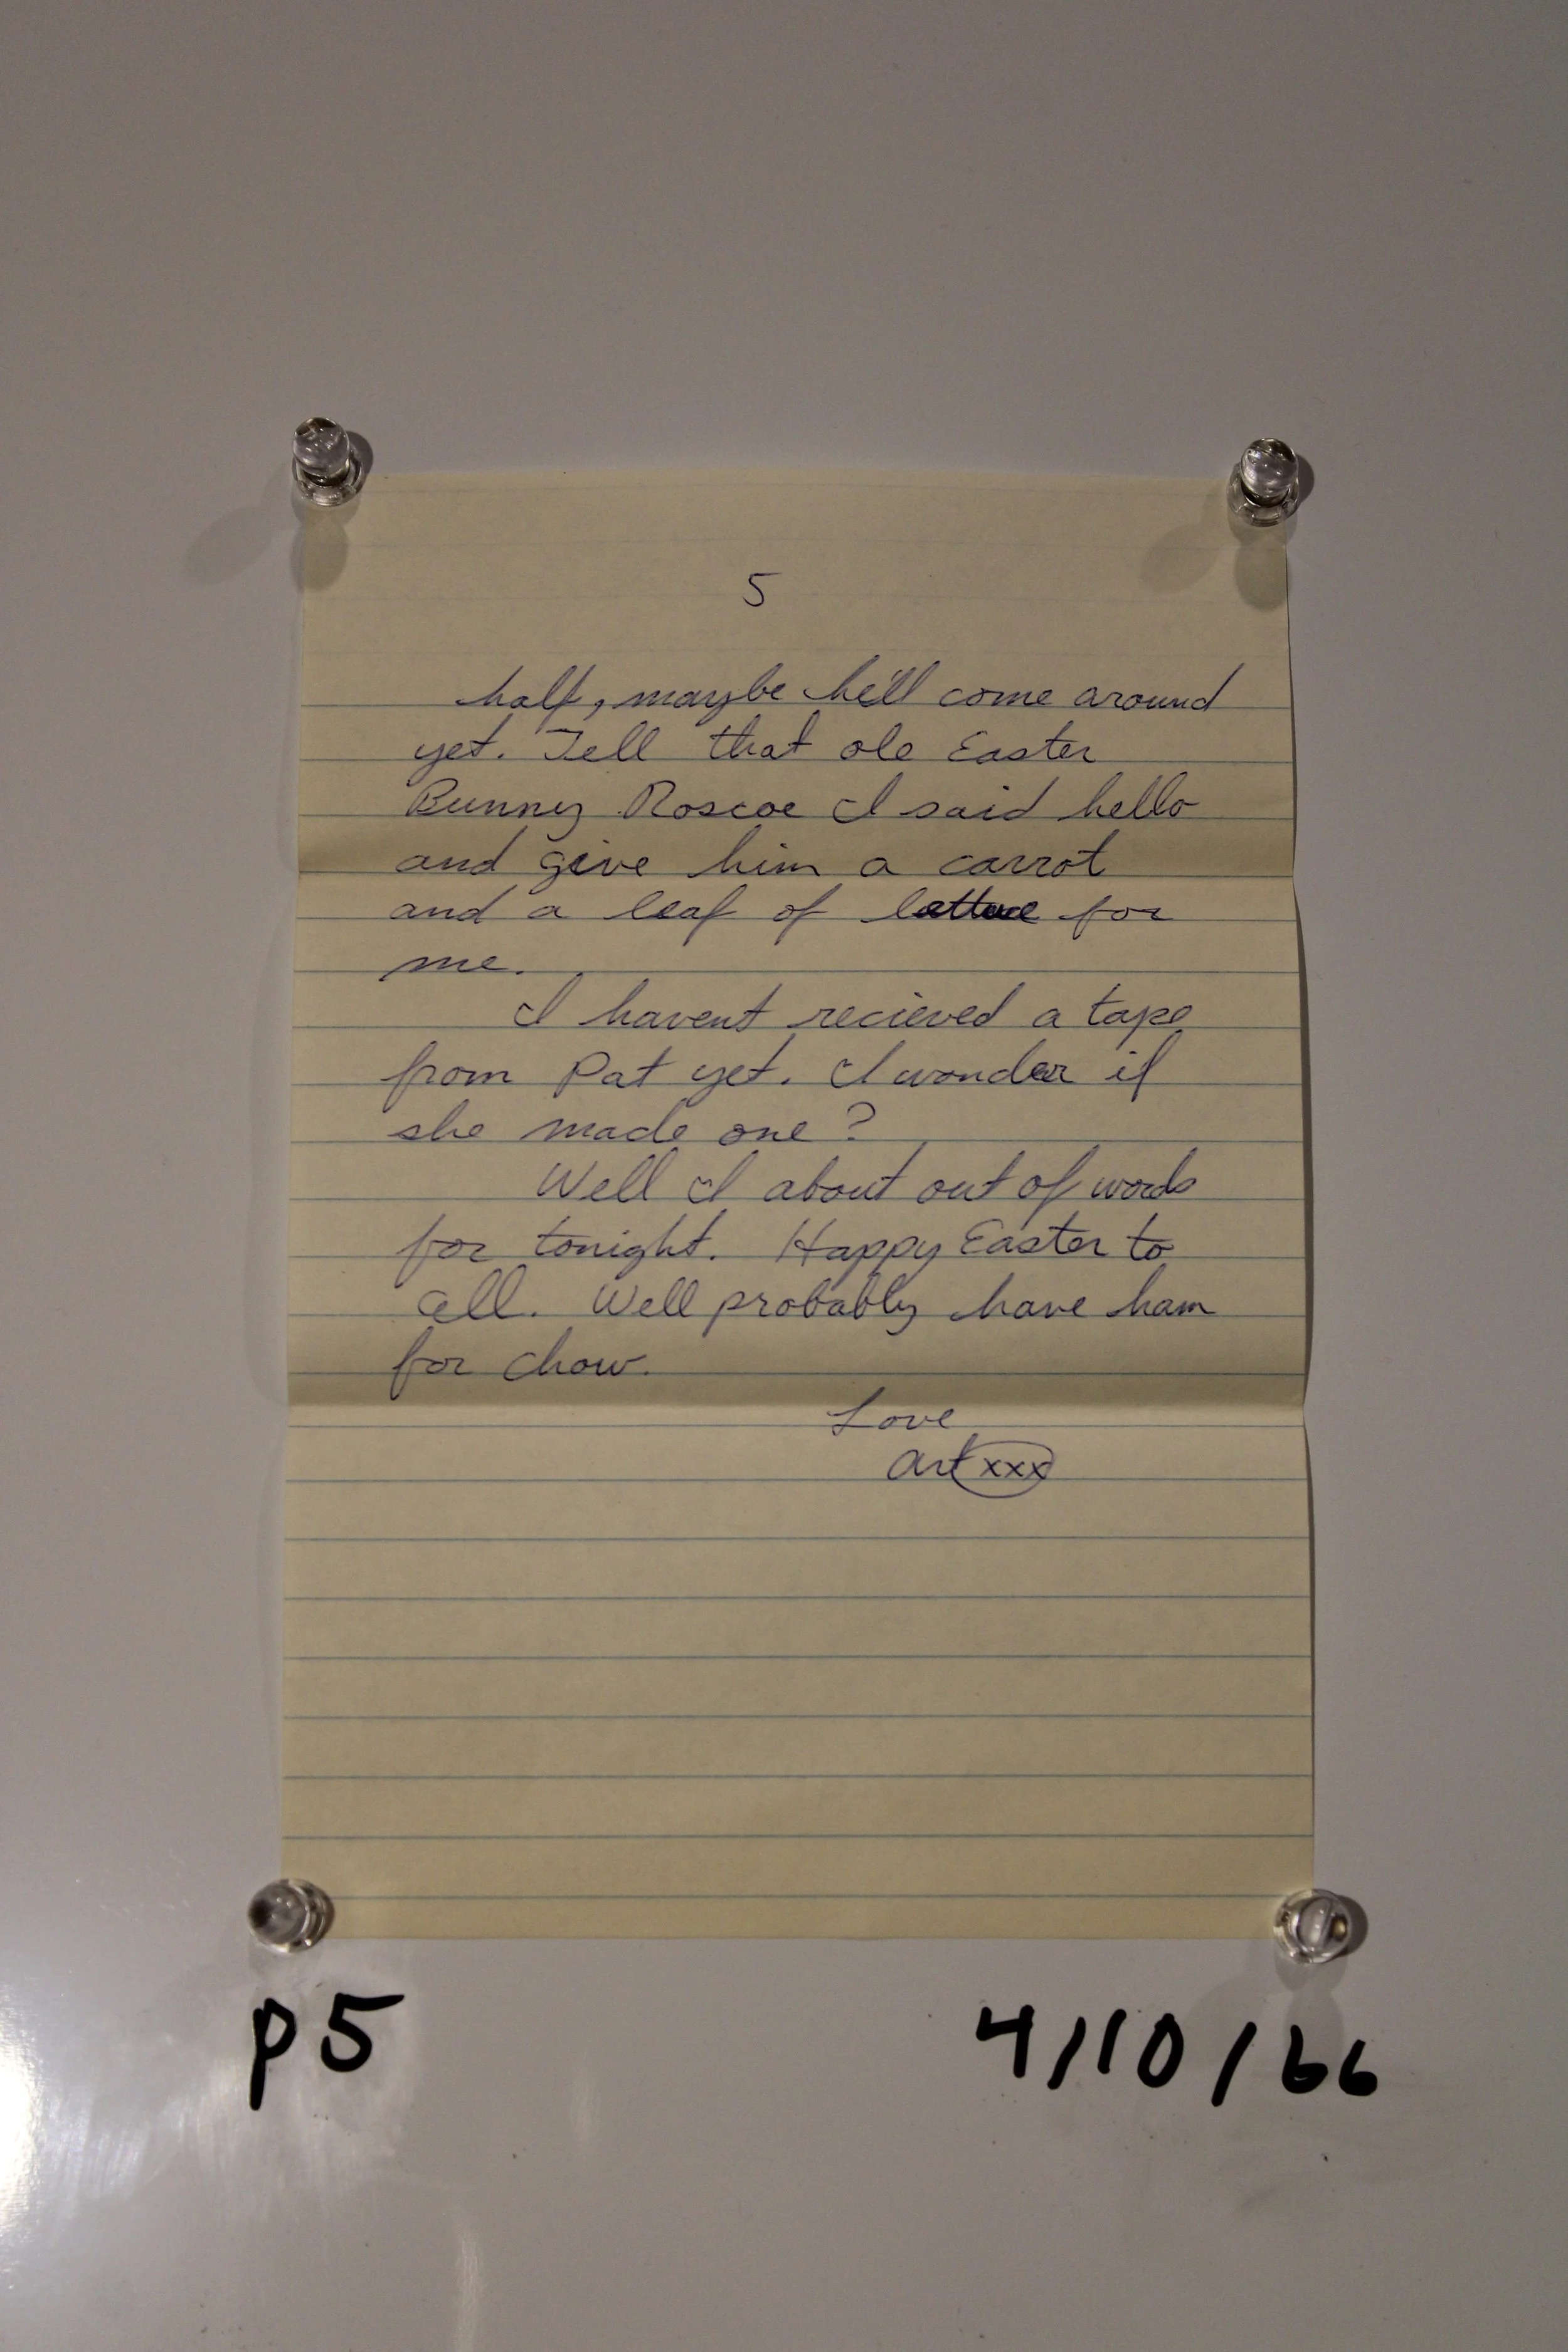 5
half, maybe he'll come around
yet. Tell that ole Easter
Bunny Roscoe I said hello
and give him a carrot
and a leaf of lettuce for
me.
I havent recieved a tape
from Pat yet. I wonder if
she made one?
Well I about out of words
for tonight. Happy Easter to
all. Well probably have ham
for chow.
Love
Art xxx
p5
4/10/66